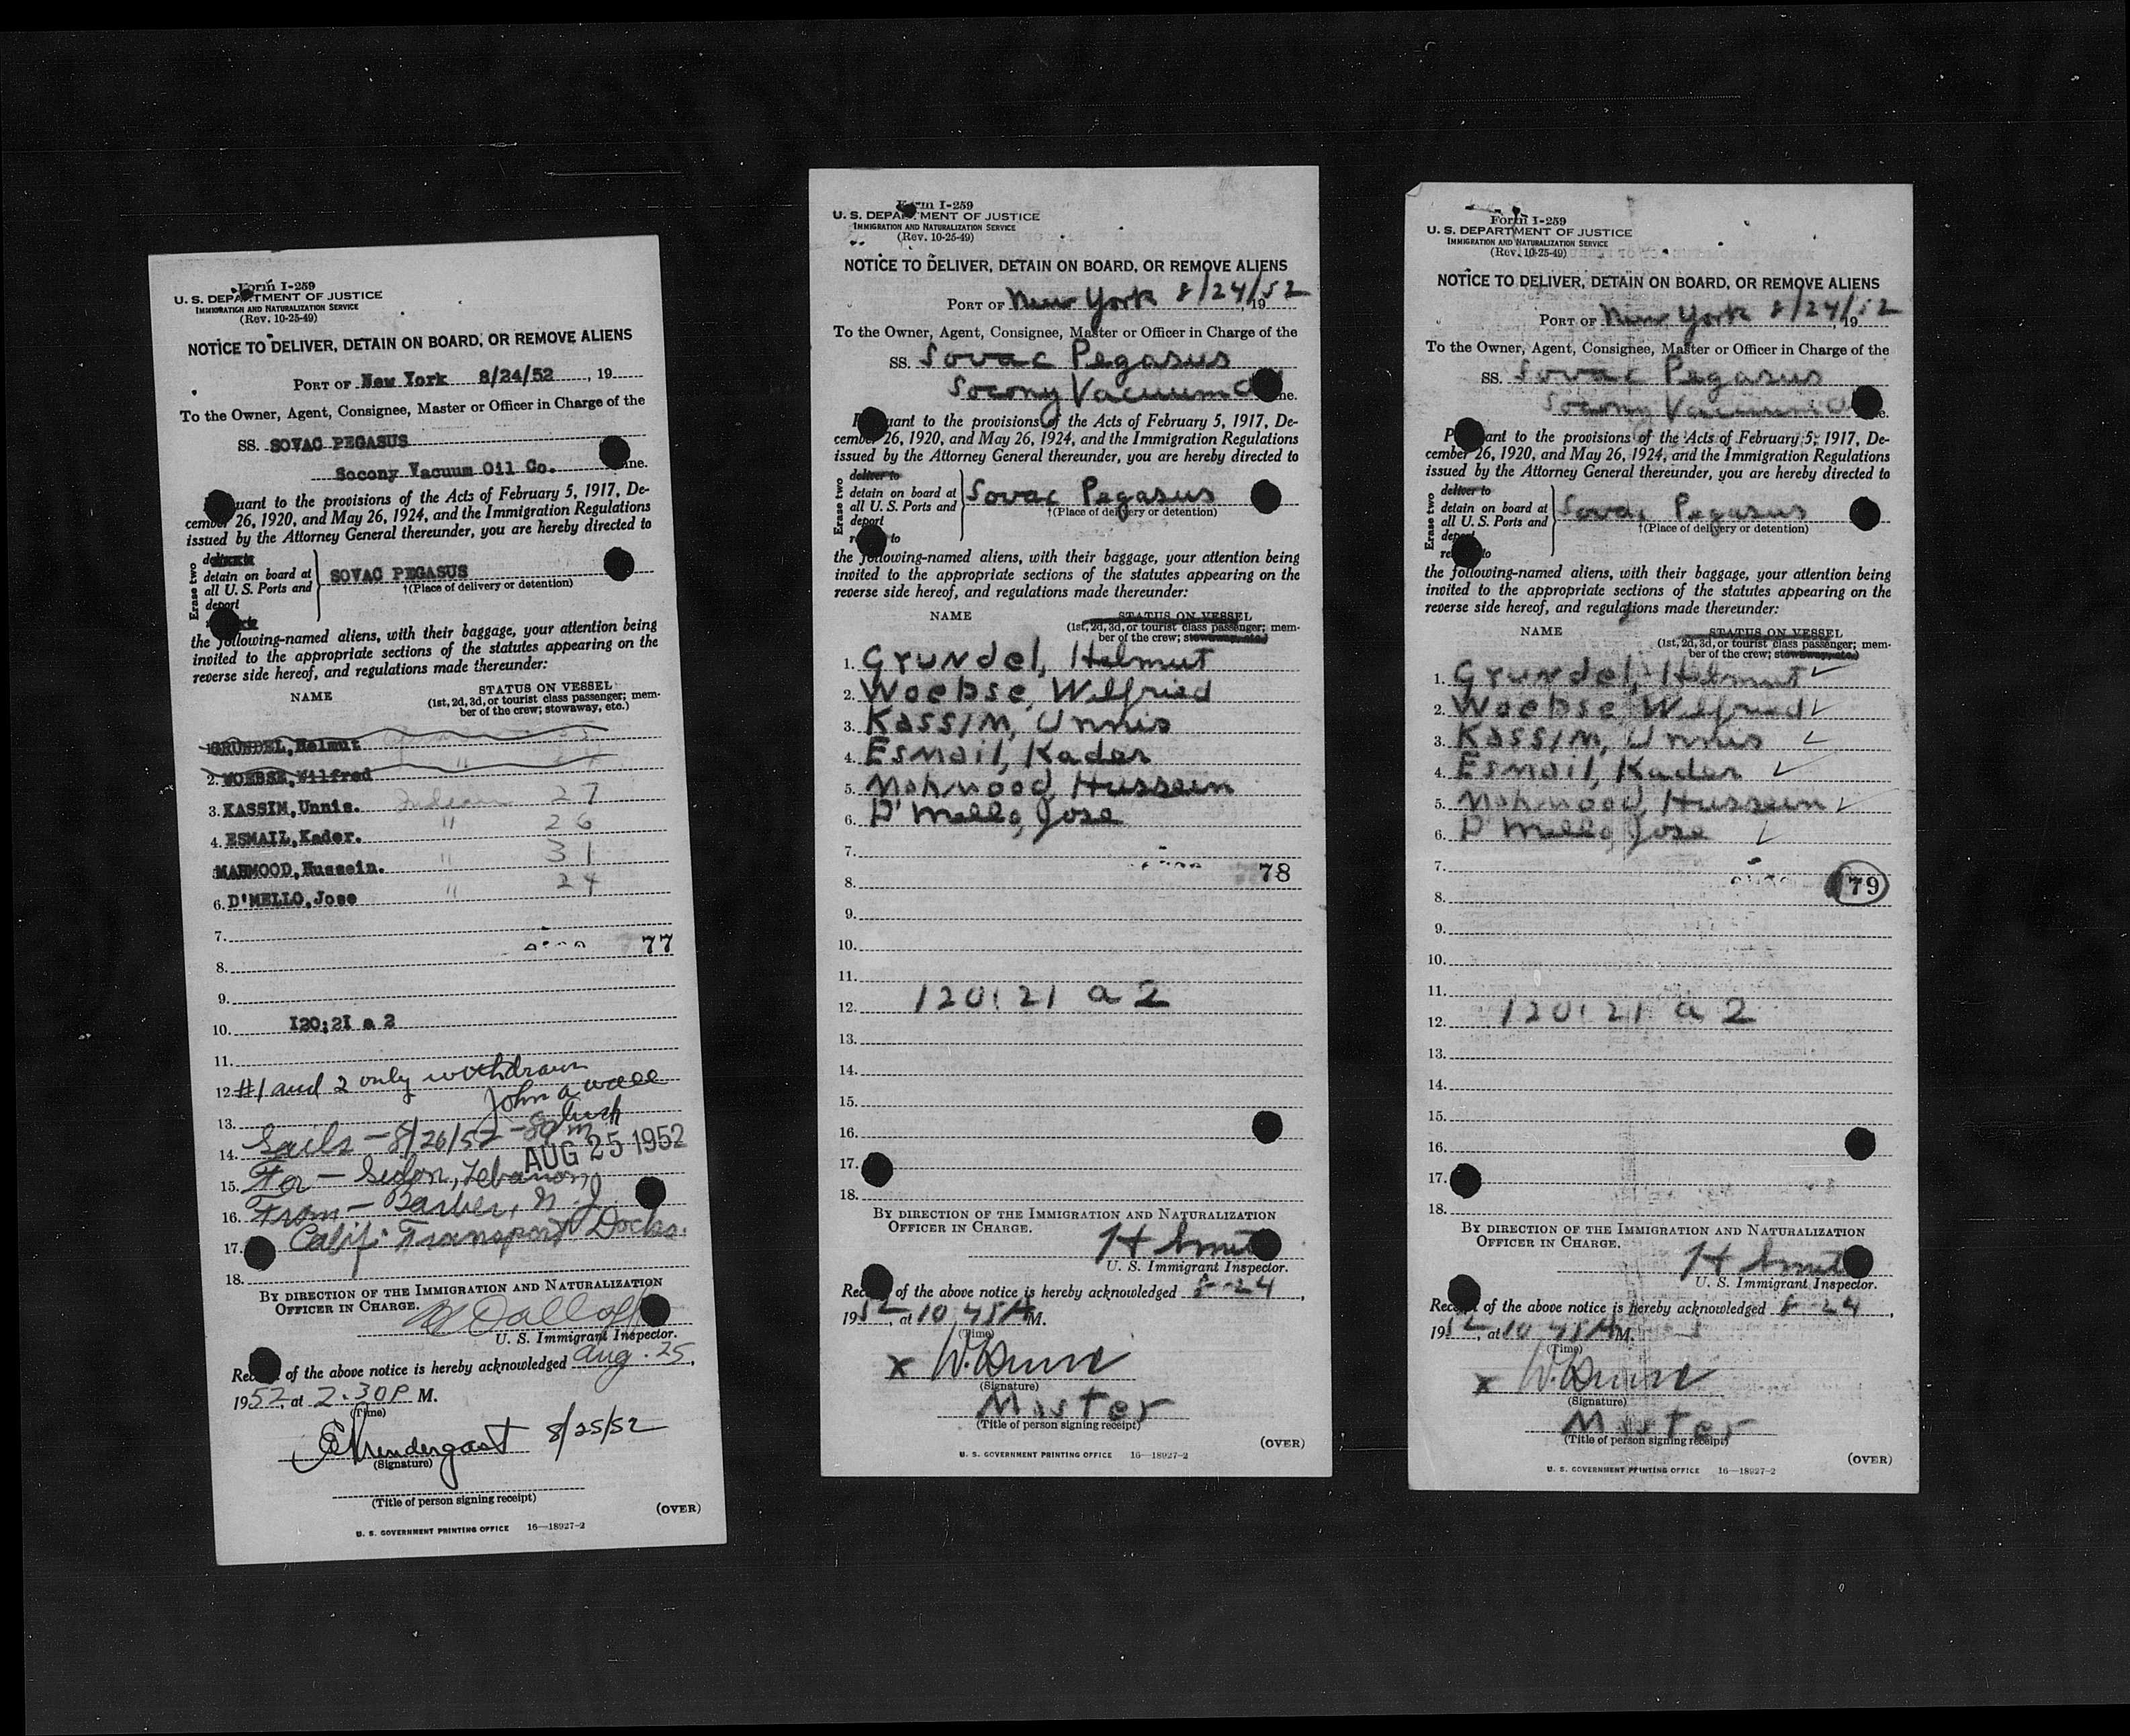 Form I-259
U. S. DEPARTMENT OF JUSTICE
IMMIGRATION AND NATURALIZATION SERVICE
(Rev. 10-25-49)
NOTICE TO DELIVER, DETAIN ON BOARD, OR REMOVE ALIENS
PORT OF New York 8/24/52, 19
To the Owner, Agent, Consignee, Master or Officer in Charge of the
SS. SOVAC PEGASUS
Socony Vacuum Oil Co. ine.
uant to the provisions of the Acts of February 5, 1917, De-
cember 26, 1920, and May 26, 1924, and the Immigration Regulations
issued by the Attorney General thereunder, you are hereby directed to
Erase two
detain on board at
all U. S. Ports and
deport
SOVAC PEGASUS
†(Place of delivery or detention)
the following-named aliens, with their baggage, your attention being
invited to the appropriate sections of the statutes appearing on the
reverse side hereof, and regulations made thereunder:
NAME STATUS ON VESSEL
(1st, 2d, 3d, or tourist class passenger; mem-
ber of the crew; stowaway, etc.)
1. GRUNDEL, Helmut
2. WOEBSE, Wilfred "
3. KASSIM, Unnis. Indian 27
4. ESMAIL, Kader. " 26
MAHMOOD, Hussein. " 31
6. D'MELLO, Jose " 24
7.
77
8.
9.
10. I20;2I a 2
11.
12. #1 and 2 only withdrawn
13. John a
14. Sails - 8/26/52 - 8am
AUG 25 1952
15. For - Sidon, Lebanon
16. From - Barber, N.J.
17. Calif. Transport Docks.
18.
BY DIRECTION OF THE IMMIGRATION AND NATURALIZATION
OFFICER IN CHARGE.
U. S. Immigrant Inspector.
Rec of the above notice is hereby acknowledged Aug. 25,
1952, at 2.30 P. M.
(Time)
8/25/52
(Signature)
(Title of person signing receipt)
(OVER)
U. S. GOVERNMENT PRINTING OFFICE 16—18927-2
Form I-259
U. S. DEPARTMENT OF JUSTICE
IMMIGRATION AND NATURALIZATION SERVICE
(Rev. 10-25-49)
NOTICE TO DELIVER, DETAIN ON BOARD, OR REMOVE ALIENS
PORT OF New York 8/24/52, 19
To the Owner, Agent, Consignee, Master or Officer in Charge of the
SS. Sovac Pegasus
Socony Vacuum O ne.
uant to the provisions of the Acts of February 5, 1917, De-
cember 26, 1920, and May 26, 1924, and the Immigration Regulations
issued by the Attorney General thereunder, you are hereby directed to
Erase two
deliver to
detain on board at
all U. S. Ports and
deport
to
Sovac Pegasus
†(Place of delivery or detention)
the following-named aliens, with their baggage, your attention being
invited to the appropriate sections of the statutes appearing on the
reverse side hereof, and regulations made thereunder:
NAME STATUS ON VESSEL
(1st, 2d, 3d, or tourist class passenger; mem-
ber of the crew; stowaway, etc.)
1. Grundel, Helmut
2. Woebse, Wilfried
3. Kassim, Unnis
4. Esmail, Kader
5. Mahmood, Hussein
6. D'Mello, Jose
7.
78
8.
9.
10.
11.
12. 120:21 a 2
13.
14.
15.
16.
17.
18.
BY DIRECTION OF THE IMMIGRATION AND NATURALIZATION
OFFICER IN CHARGE.
H
U. S. Immigrant Inspector.
Rec of the above notice is hereby acknowledged 8-24,
1952, at 10 45 A M.
(Time)
x W.
(Signature)
Master
(Title of person signing receipt)
(OVER)
U. S. GOVERNMENT PRINTING OFFICE 16—18927-2
Form I-259
U. S. DEPARTMENT OF JUSTICE
IMMIGRATION AND NATURALIZATION SERVICE
(Rev. 10-25-49)
NOTICE TO DELIVER, DETAIN ON BOARD, OR REMOVE ALIENS
PORT OF New York 8/24/52, 19
To the Owner, Agent, Consignee, Master or Officer in Charge of the
SS. Sovac Pegasus
Socony Vacuum O e.
P ant to the provisions of the Acts of February 5, 1917, De-
cember 26, 1920, and May 26, 1924, and the Immigration Regulations
issued by the Attorney General thereunder, you are hereby directed to
Erase two
deliver to
detain on board at
all U. S. Ports and
deport
to
Sovac Pegasus
†(Place of delivery or detention)
the following-named aliens, with their baggage, your attention being
invited to the appropriate sections of the statutes appearing on the
reverse side hereof, and regulations made thereunder:
NAME STATUS ON VESSEL
(1st, 2d, 3d, or tourist class passenger; mem-
ber of the crew; stowaway, etc.)
1. Grundel, Helmut ✓
2. Woebse, Wilfried ✓
3. Kassim, Unnis ✓
4. Esmail, Kader ✓
5. Mahmood, Hussein ✓
6. D'Mello, Jose ✓
7.
79
8.
9.
10.
11.
12. 120:21 a 2
13.
14.
15.
16.
17.
18.
BY DIRECTION OF THE IMMIGRATION AND NATURALIZATION
OFFICER IN CHARGE.
H
U. S. Immigrant Inspector.
Rec of the above notice is hereby acknowledged 8-24,
1952, at 10 45 A M.
(Time)
x W.
(Signature)
Master
(Title of person signing receipt)
(OVER)
U. S. GOVERNMENT PRINTING OFFICE 16—18927-2